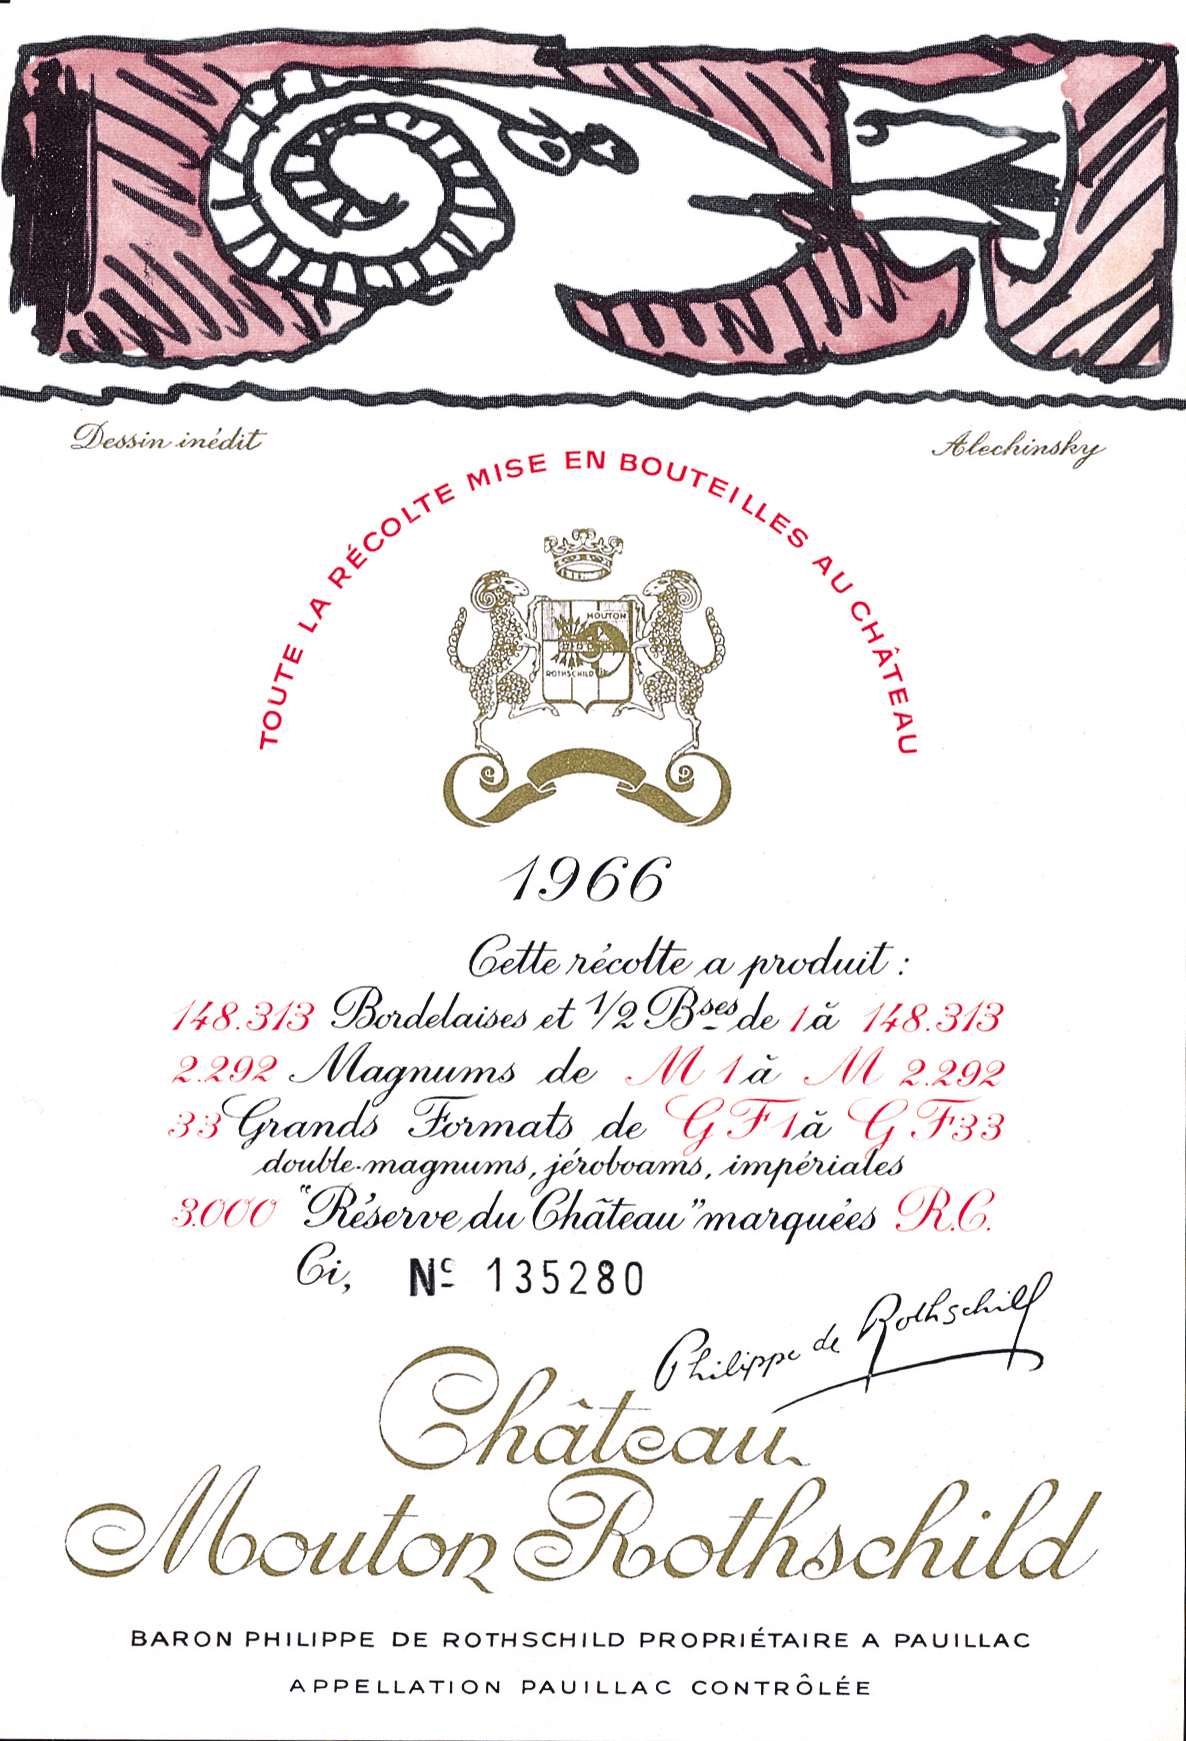 Dessin inédit
Alechinsky
TOUTE LA RÉCOLTE MISE EN BOUTEILLES AU CHÂTEAU
MOUTON
ROTHSCHILD
1966
Cette récolte a produit :
148.313 Bordelaises et 1/2 Bses de 1 à 148.313
2.292 Magnums de M 1 à M 2.292
33 Grands Formats de G F 1 à G F 33
double-magnums, jéroboams, impériales
3.000 "Réserve du Château" marquées R.C.
Ci, No 135280
Philippe de Rothschild
Château
Mouton Rothschild
BARON PHILIPPE DE ROTHSCHILD PROPRIÉTAIRE A PAUILLAC
APPELLATION PAUILLAC CONTRÔLÉE